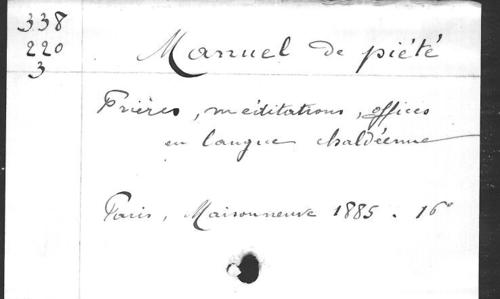 338
220
3
Manuel de piété
Prières, méditations, offices
en langue chaldéenne
Paris, Maisonneuve 1885. 16°